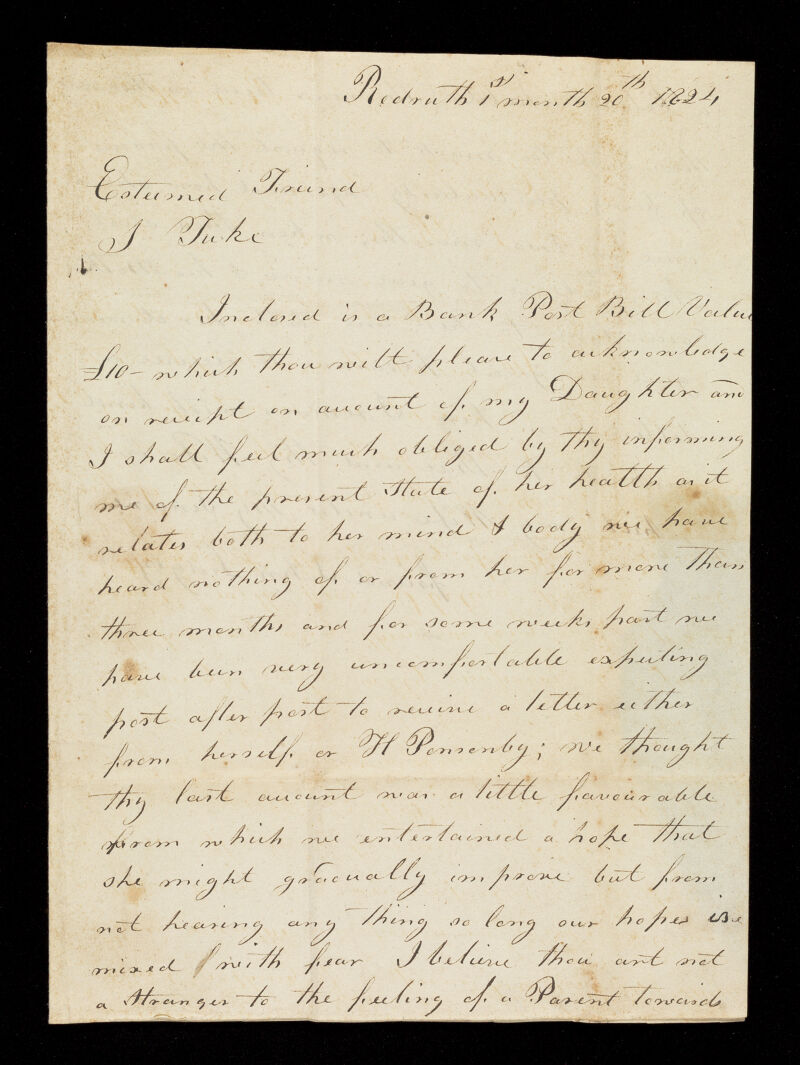 Redruth 1st month 20th 1824
Esteemed Friend
S Tuke
Inclosed is a Bank Post Bill Value
£10 - which thou wilt please to acknowledge
on receipt on account of my Daughter and
I shall feel much obliged by thy informing
me of the present State of her health as it
relates both to her mind & body we have
heard nothing of or from her for more than
three months and for some weeks past we
have been very uncomfortable expecting
post after post to receive a letter either
from herself or H Ponsonby; we thought
thy last account was a little favourable
from which we entertained a hope that
she might gradually improve but from
not hearing any thing so long our hopes is
mixed with fear I believe thou art not
a Stranger to the feeling of a Parent towards